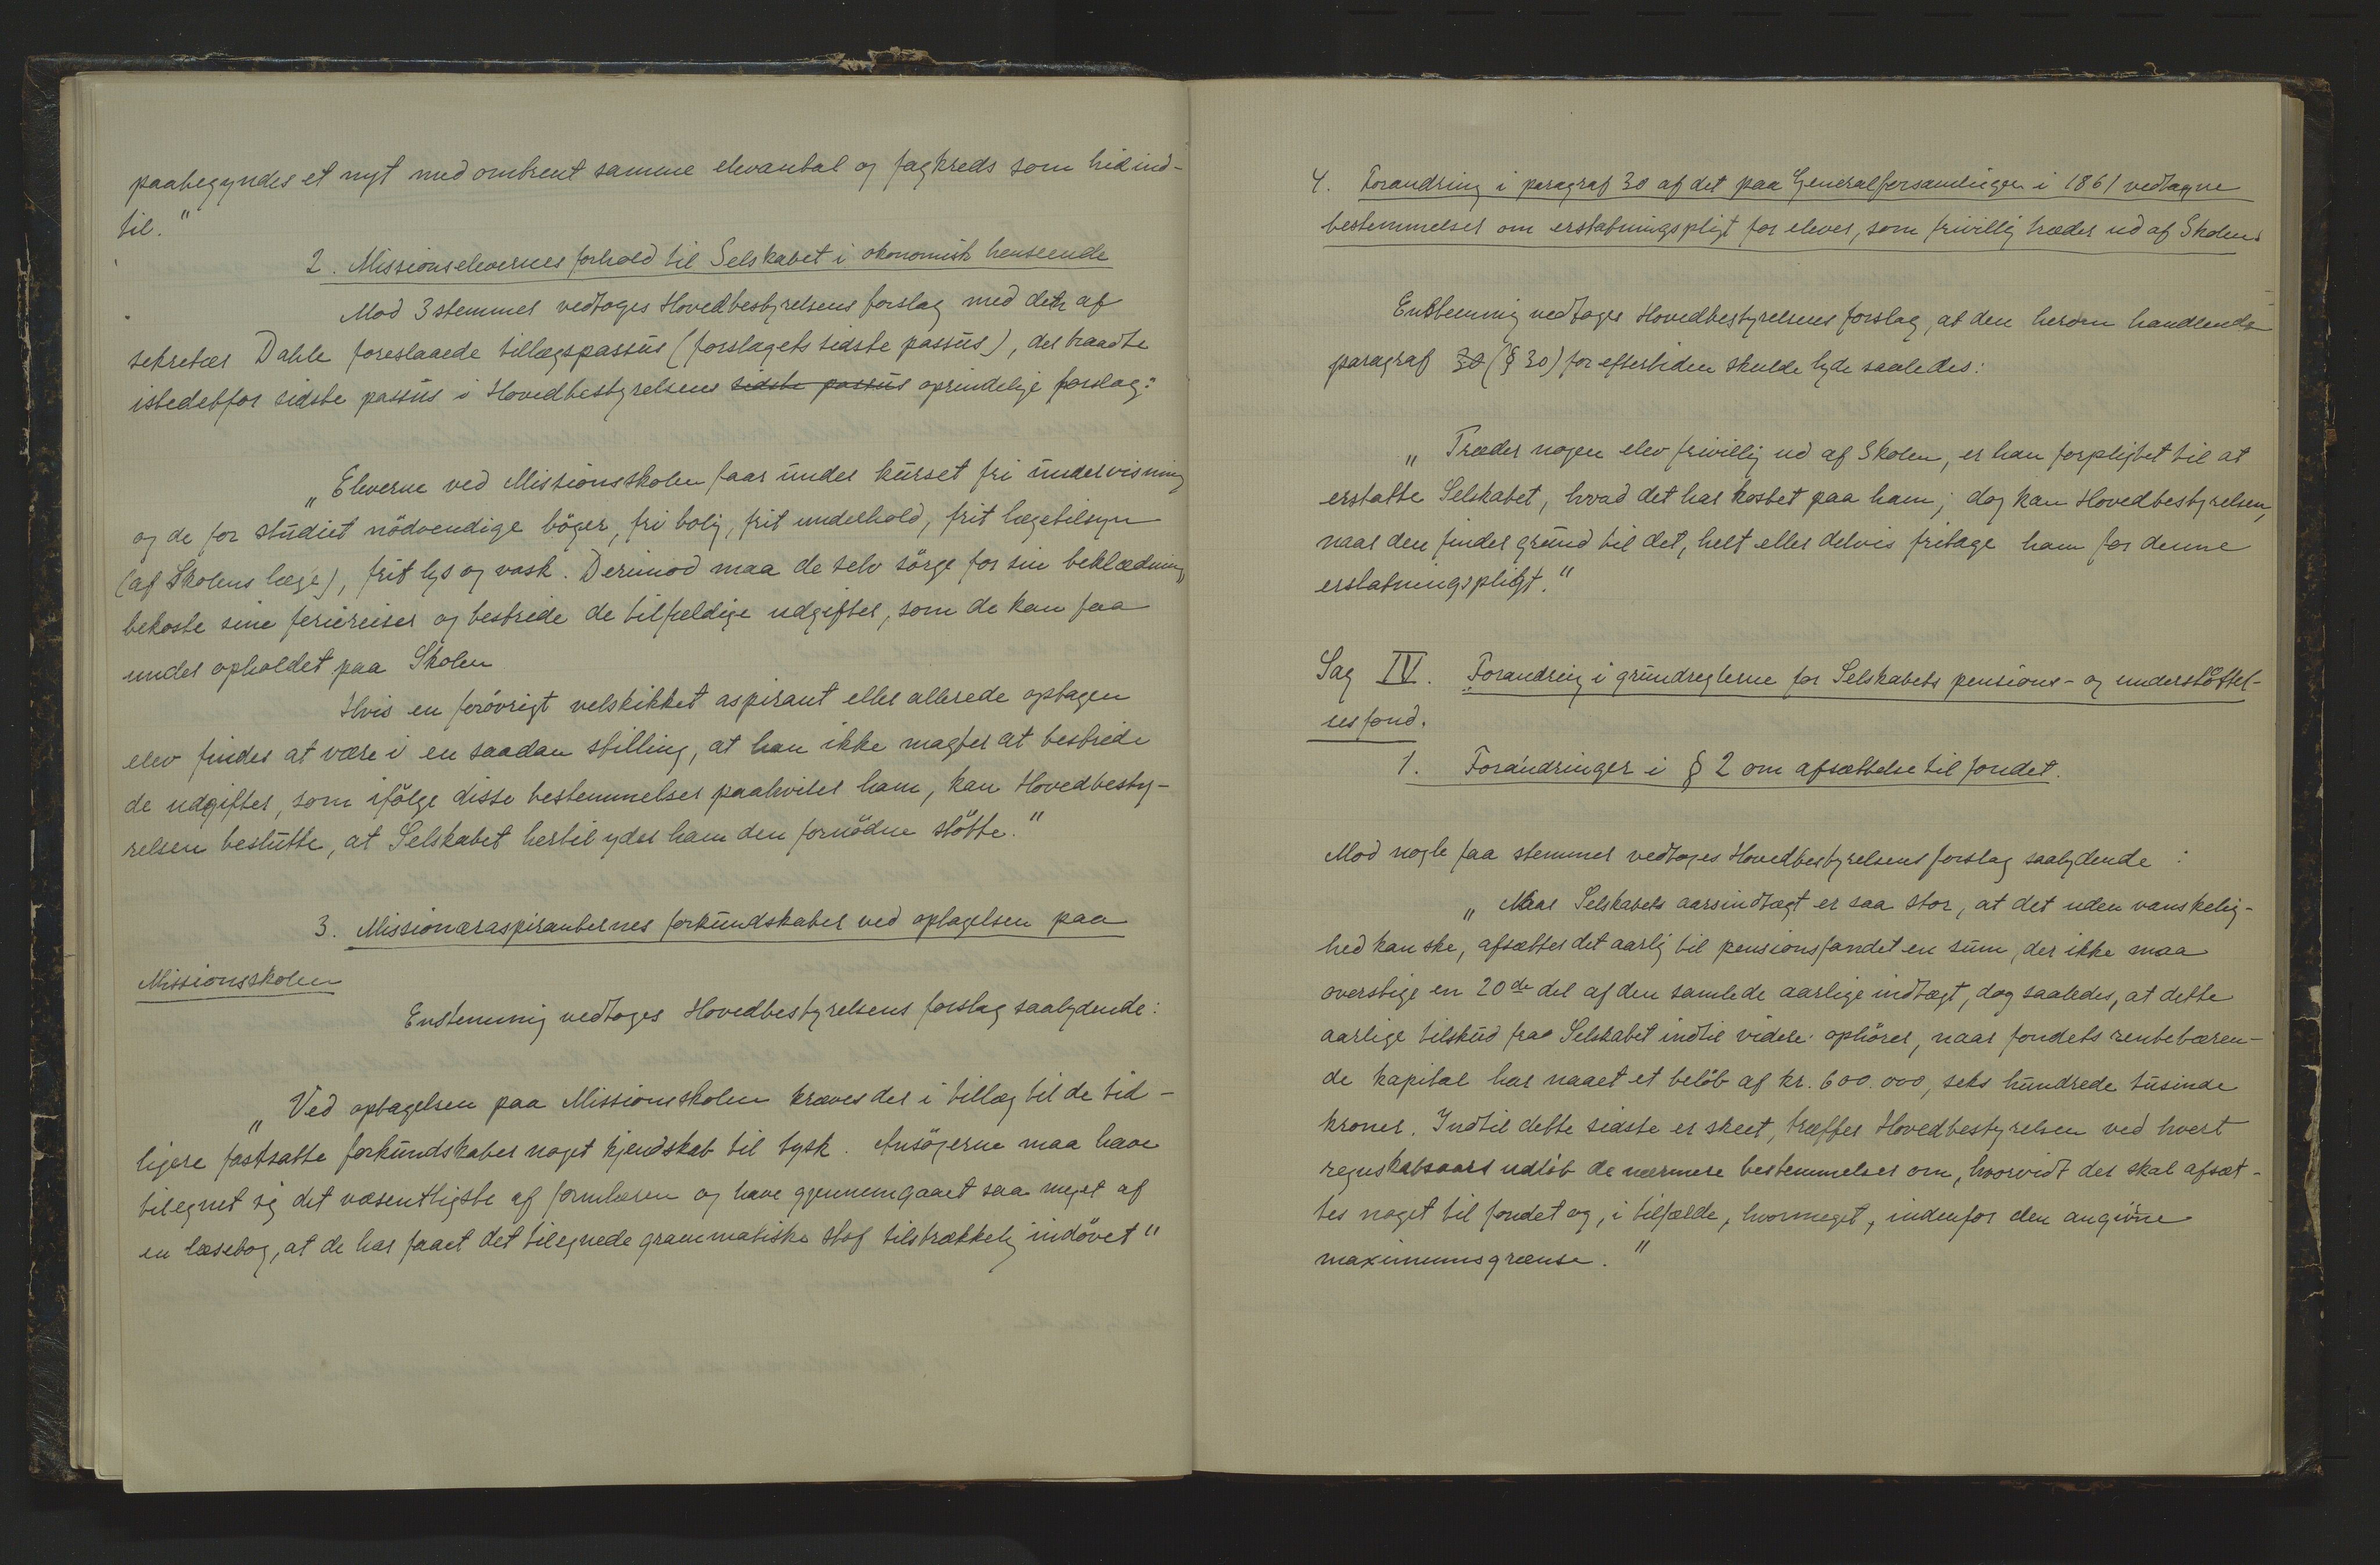 paabegyndes et nyt med omtrent samme elevantal og fagkreds som hidind-
til."
2. Missionselevernes forhold til Selskabet i økonomisk henseende
Mod 3 stemmer vedtoges Hovedbestyrelsens forslag med det af
sekretær Dahle foreslaaede tillægspassus (forslagets sidste passus), der traadte
istedetfor sidste passus i Hovedbestyrelsens sidste passus oprindelige forslag:
„Eleverne ved Missionsskolen faar under kurset fri undervisning
og de for studiet nödvendige böger, fri bolig, frit underhold, frit lægetilsyn
(af Skolens læge), frit lys og vask. Derimod maa de selv sörge for sin beklædning
bekoste sine feriereiser og bestride de tilfældige udgifter, som de kan faa
under opholdet paa Skolen
Hvis en forövrigt velskikket aspirant eller allerede optagen
elev findes at være i en saadan stilling, at han ikke magter at bestride
de udgifter, som ifölge disse bestemmelser paahviler ham, kan Hovedbesty-
relsen beslutte, at Selskabet hertil yder ham den fornödne stötte."
3. Missionæraspiranternes forkundskaber ved optagelsen paa
Missionsskolen
Enstemmig vedtoges Hovedbestyrelsens forslag saalydende:
„Ved optagelsen paa Missionsskolen kræves der i tillæg til de tid-
ligere fastsatte forkundskaber noget kjendskab til tysk. Ansögerne maa have
tilegnet sig det væsentligste af formlæren og have gjennemgaaet saa meget af
en læsebog, at de har faaet det tilegnede grammatiske stof tilstrækkelig indövet"
4. Forandring i paragraf 30 af det paa Generalforsamlingen i 1861 vedtagne
bestemmelser om erstatningspligt for elever, som frivillig træder ud af Skolen.
Enstemmig vedtoges Hovedbestyrelsens forslag, at den herom handlende
paragraf 30 (§ 30) for eftertiden skulde lyde saaledes:
„Træder nogen elev frivillig ud af Skolen, er han forpligtet til at
erstatte Selskabet, hvad det har kostet paa ham; dog kan Hovedbestyrelsen,
naar den finder grund til det, helt eller delvis fritage ham for denne
erstatningspligt."
Sag IV. Forandring i grundreglerne for Selskabets pensions- og understöttel-
sesfond.
1. Forandringer i § 2 om afsættelse til fondet.
Mod nogle faa stemmer vedtoges Hovedbestyrelsens forslag saalydende :
„Naar Selskabets aarsindtægt er saa stor, at det uden vanskelig-
hed kan ske, afsættes det aarlig til pensionsfondet en sum, der ikke maa
overstige en 20de del af den samlede aarlige indtægt, dog saaledes, at dette
aarlige tilskud fra Selskabet indtil videre ophörer, naar fondets rentebæren-
de kapital har naaet et belöb af kr. 600.000, seks hundrede tusinde
kroner. Indtil dette sidste er skeet, træffer Hovedbestyrelsen ved hvert
regnskabsaars udlöb de nærmere bestemmelser om, hvorvidt der skal afsæt-
tes noget til fondet og, i tilfælde, hvormeget, indenfor den angivne
maximumsgrænse."